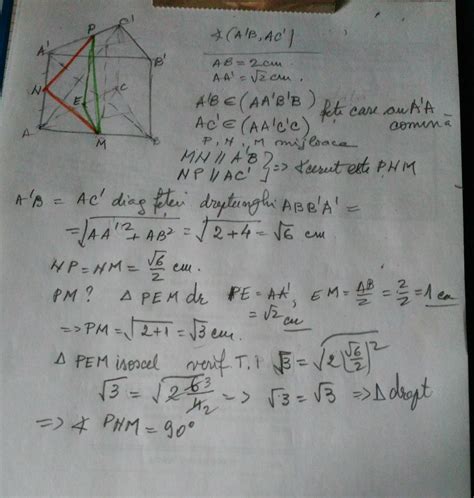 P C'
A' B'
N
E C
A M B
∢(A'B, AC')
AB = 2cm
AA' = √2 cm.
A'B ∈ (AA'B'B) fețe care au A'A
AC' ∈ (AA'C'C) comună
P, N, M mijloace
MN // A'B
NP // AC' } => ∢ cerut este PNM
A'B = AC' diag feței dreptunghi ABB'A' =
= √AA'² + AB² = √2+4 = √6 cm
NP = NM = √6/2 cm.
PM? Δ PEM dr PE = AA' = √2 cm, EM = AB/2 = 2/2 = 1 cm
=> PM = √2+1 = √3 cm.
Δ PEM isoscel verif T.P √3 = √2(√6/2)²
√3 = √2 6 3/4 2 => √3 = √3 => Δ drept
=> ∢ PNM = 90°